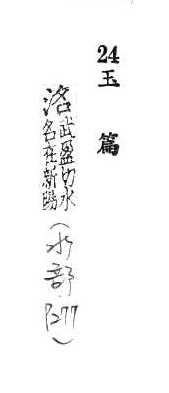 24
玉篇
洺武盈切水
名在新陽
(水部
P277)